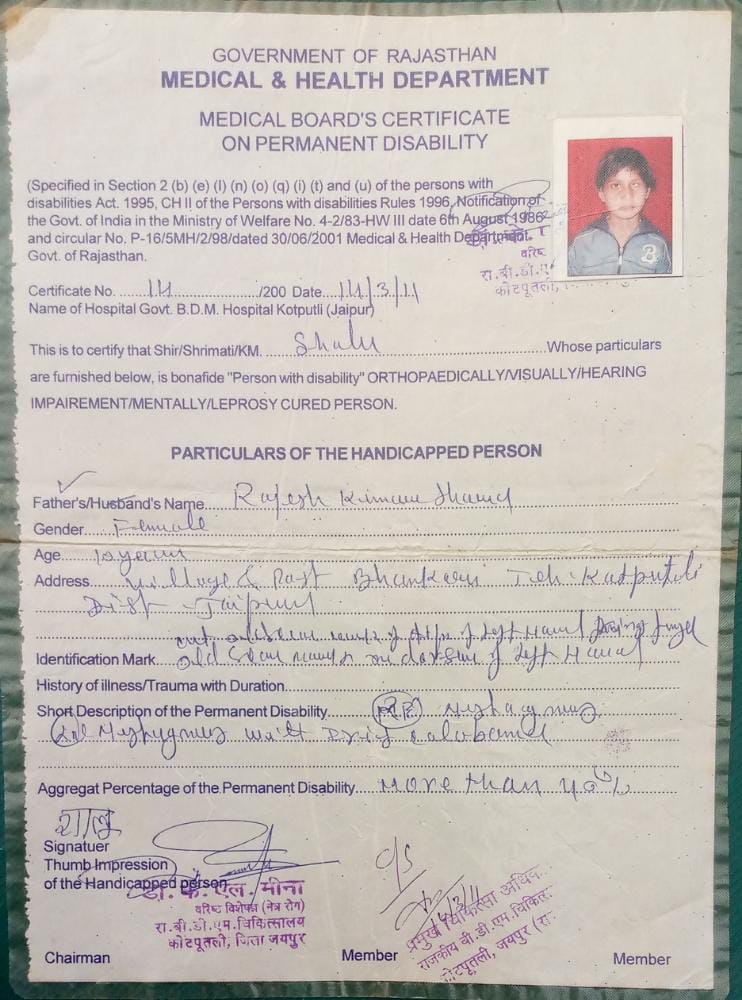 GOVERNMENT OF RAJASTHAN
MEDICAL & HEALTH DEPARTMENT
MEDICAL BOARD'S CERTIFICATE
ON PERMANENT DISABILITY
(Specified in Section 2 (b) (e) (l) (n) (o) (q) (i) (t) and (u) of the persons with
disabilities Act. 1995, CH II of the Persons with disabilities Rules 1996, Notification of
the Govt. of India in the Ministry of Welfare No. 4-2/83-HW III date 6th August 1986
and circular No. P-16/5MH/2/98/dated 30/06/2001 Medical & Health Department.
Govt. of Rajasthan.
वरिष्
रा.बी.डी.ए
कोटपूतली,
B
Certificate No. 14 /200 Date 14/3/11
Name of Hospital Govt. B.D.M. Hospital Kotputli (Jaipur)
This is to certify that Shir/Shrimati/KM. Shalu Whose particulars
are furnished below, is bonafide "Person with disability" ORTHOPAEDICALLY/VISUALLY/HEARING
IMPAIREMENT/MENTALLY/LEPROSY CURED PERSON.
PARTICULARS OF THE HANDICAPPED PERSON
Father's/Husband's Name Rajesh Kumar Sharma
Gender Female
Age 10 years
Address Village & Post Bhankari Teh. Kotputli
Dist Jaipur
of Left Hand finger
Identification Mark Old on dorsum of Left Hand
History of illness/Trauma with Duration
Short Description of the Permanent Disability RE Nystagmus
LE Nystagmus with
Aggregat Percentage of the Permanent Disability More than 40%
शालु
Signatuer
Thumb Impression
of the Handicapped person
डा. के. एल. मीना
वरिष्ट विशेषज्ञ (नेत्र रोग)
रा.बी.डी.एम.चिकित्सालय
कोटपूतली, जिला जयपुर
C/S
14/3/11
प्रमुख चिकित्सा अधिक
राजकीय बी.डी.एम.चिकित्
कोटपूतली, जयपुर (रा
Chairman Member Member